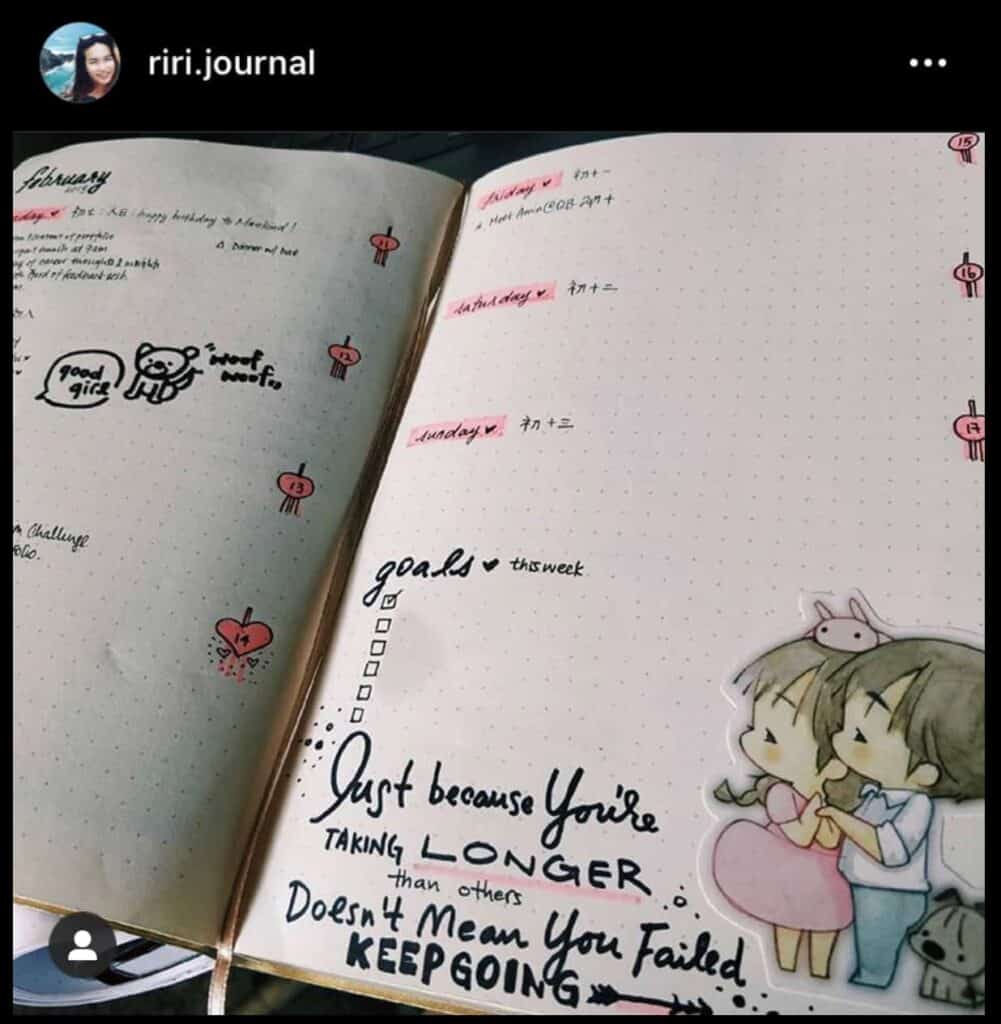 riri.journal
february
day
初七: 人日: happy birthday to Mankind!
portfolio
emails at 9am
of career thoughts & insights
of feedback
△ Dinner w/
11
12
good
girl
"woof
woof"
13
Challenge
14
friday 初十一
Meet
15
saturday 初十二
16
sunday 初十三
17
goals this week
Just because You're
TAKING LONGER
than others
Doesn't Mean You Failed
KEEP GOING